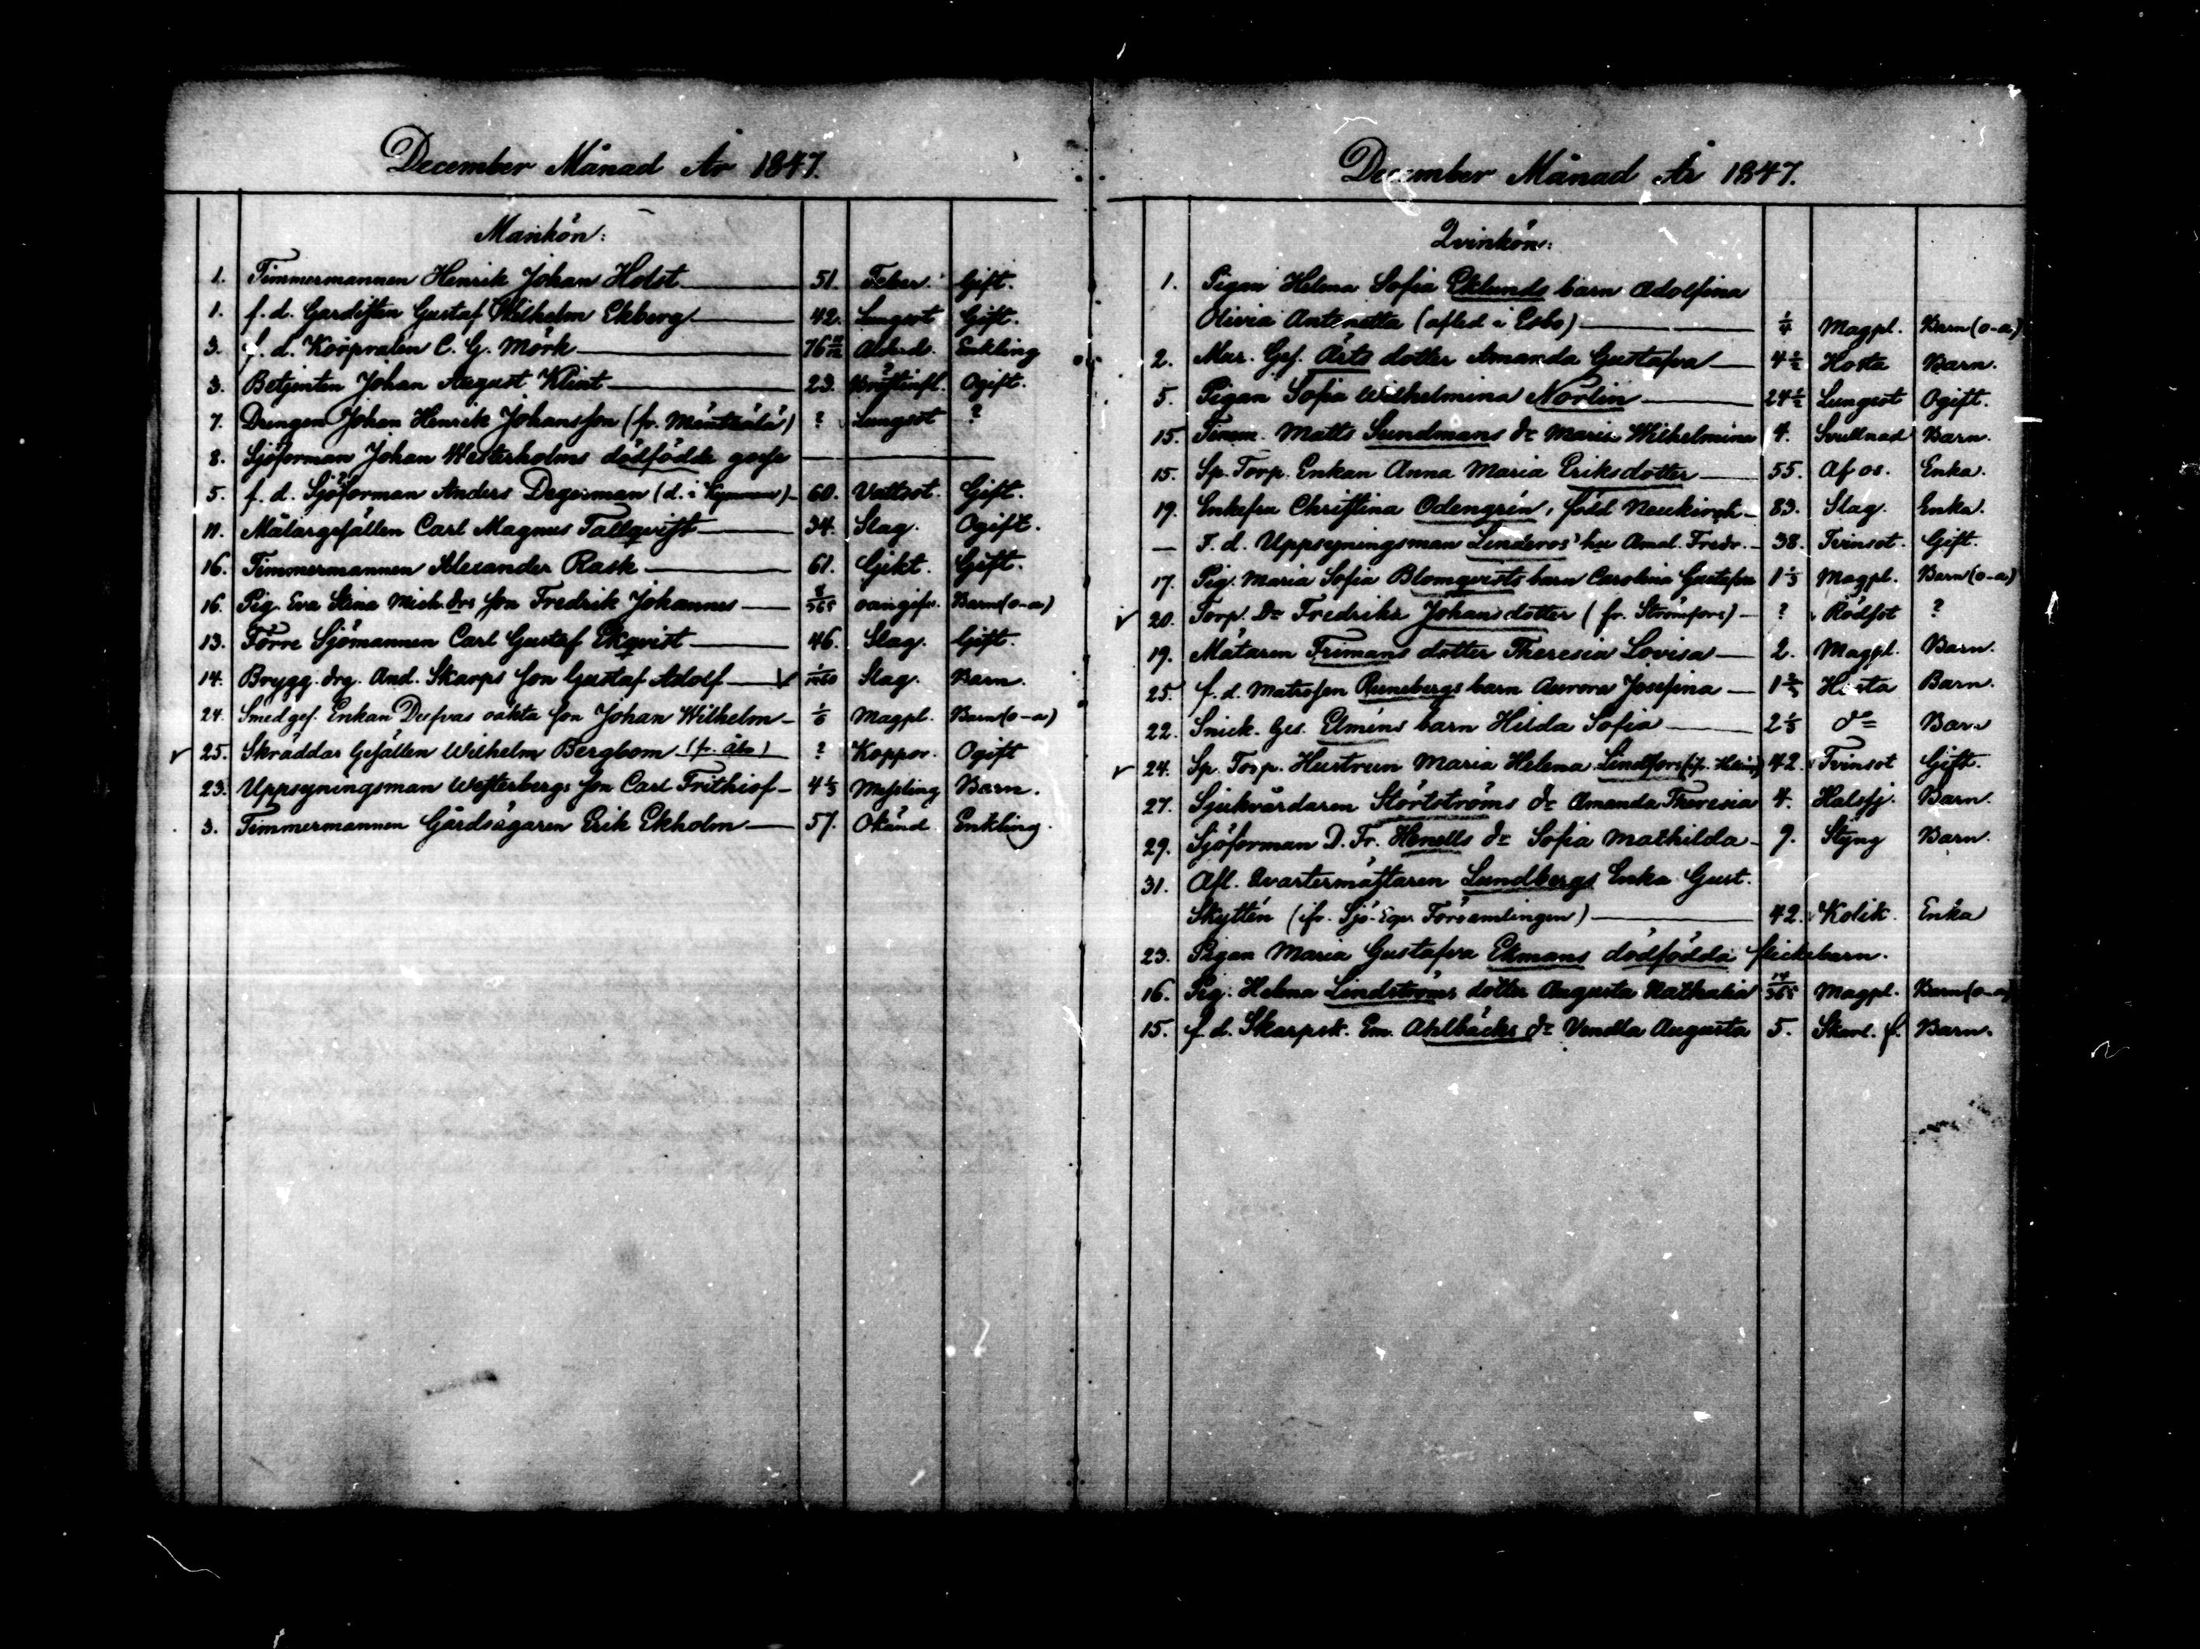 December Månad År 1847.
Mankön:
1. Timmermannen Henrik Johan Holst 51. Feber. Gift.
1. f. d. Gardisten Gustaf Wilhelm Ekberg 42. Lungsot Gift.
3. f. d. Korpralen C. G. Mörk 76 Enkling
3. Betjenten Johan August Klint 23. Bröstinfl. Ogift.
7. Drengen Johan Henrik Johansson (fr. Mäntsälä) ? Lungsot ?
8. Sjöforman Johan Westerholms dödfödde gosse
5. f. d. Sjöforman Anders Degerman (d. i Kymmene) 60. Vattsot. Gift.
11. Målargesällen Carl Magnus Tallqvist 34. Slag. Ogift.
16. Timmermannen Alexander Rask 61. Gikt. Gift.
16. Pig. Eva Stina Mich. drs son Fredrik Johannes 8/365 oangifv. Barn (o-ä)
13. Förre Sjömannen Carl Gustaf Ekqvist 46. Slag. Gift.
14. Brygg. drg. And. Skarps son Gustaf Adolf Slag. Barn.
24. Smedges. Enkan oäkta son Johan Wilhelm 1/6 Magpl. Barn (o-ä)
25. Skräddar Gesällen Wilhelm Bergbom (fr. Åbo) ? Koppor. Ogift
23. Uppsyningsman Westerbergs son Carl Frithiof 4 1/3 Messling Barn.
3. Timmermannen Gårdsägaren Erik Ekholm 57. Okänd Enkling.
December Månad År 1847.
Qvinkön:
1. Pigan Helena Sofia Eklunds barn Adolfina
Olivia Antonetta (afled i Esbo) 1/4 Magpl. Barn (o-ä)
2. Mur. Ges. Ärts dotter Amanda Gustafva 4 1/2 Hosta Barn.
5. Pigan Sofia Wilhelmina Norlin 24 1/2 Lungsot Ogift.
15. Timm. Matts Sundmans dr Maria Wilhelmina 4. Svullnad Barn.
15. Sp. Torp. Enkan Anna Maria Eriksdotter 55. Af os. Enka.
19. Enkefru Christina Odengrén, född Neukirch 83. Slag. Enka.
— F. d. Uppsyningsman Linderos' hu Amal. Fredr. 38. Tvinsot. Gift.
17. Pig. Maria Sofia Blomqvists barn Carolina Gustafva 1 1/3 Magpl. Barn (o-ä)
20. Torp. dr Fredrika Johansdotter (fr. Strömfors) ? Rödsot ?
19. Mätaren Frimans dotter Theresia Lovisa 2. Magpl. Barn.
25. f. d. Matrosen Runebergs barn Aurora Josefina 1 2/3 Hosta Barn.
22. Snick. Ges. Elméns barn Hilda Sofia 2 1/3 do Barn
24. Sp. Torp. Hustrun Maria Helena Lindfors 42. Tvinsot Gift.
27. Sjukvårdaren Störtströms dr Amanda Theresia 4. Halssj. Barn.
29. Sjöforman D. Fr. Henells dr Sofia Mathilda 9. Styng Barn.
31. Afl. Qvartermästaren Lundbergs Enka Gust.
Skyttén (fr. Sjö-Eqv. Församlingen) 42. Kolik. Enka
23. Pigan Maria Gustafva Ekmans dödfödda flickebarn.
16. Pig. Helena Lindströms dotter Augusta Nathalia 14/365 Magpl. Barn (o-ä)
15. f. d. Skarpsk. Em. Ahlbäcks dr Vendla Augusta 5. Skarl. f. Barn.